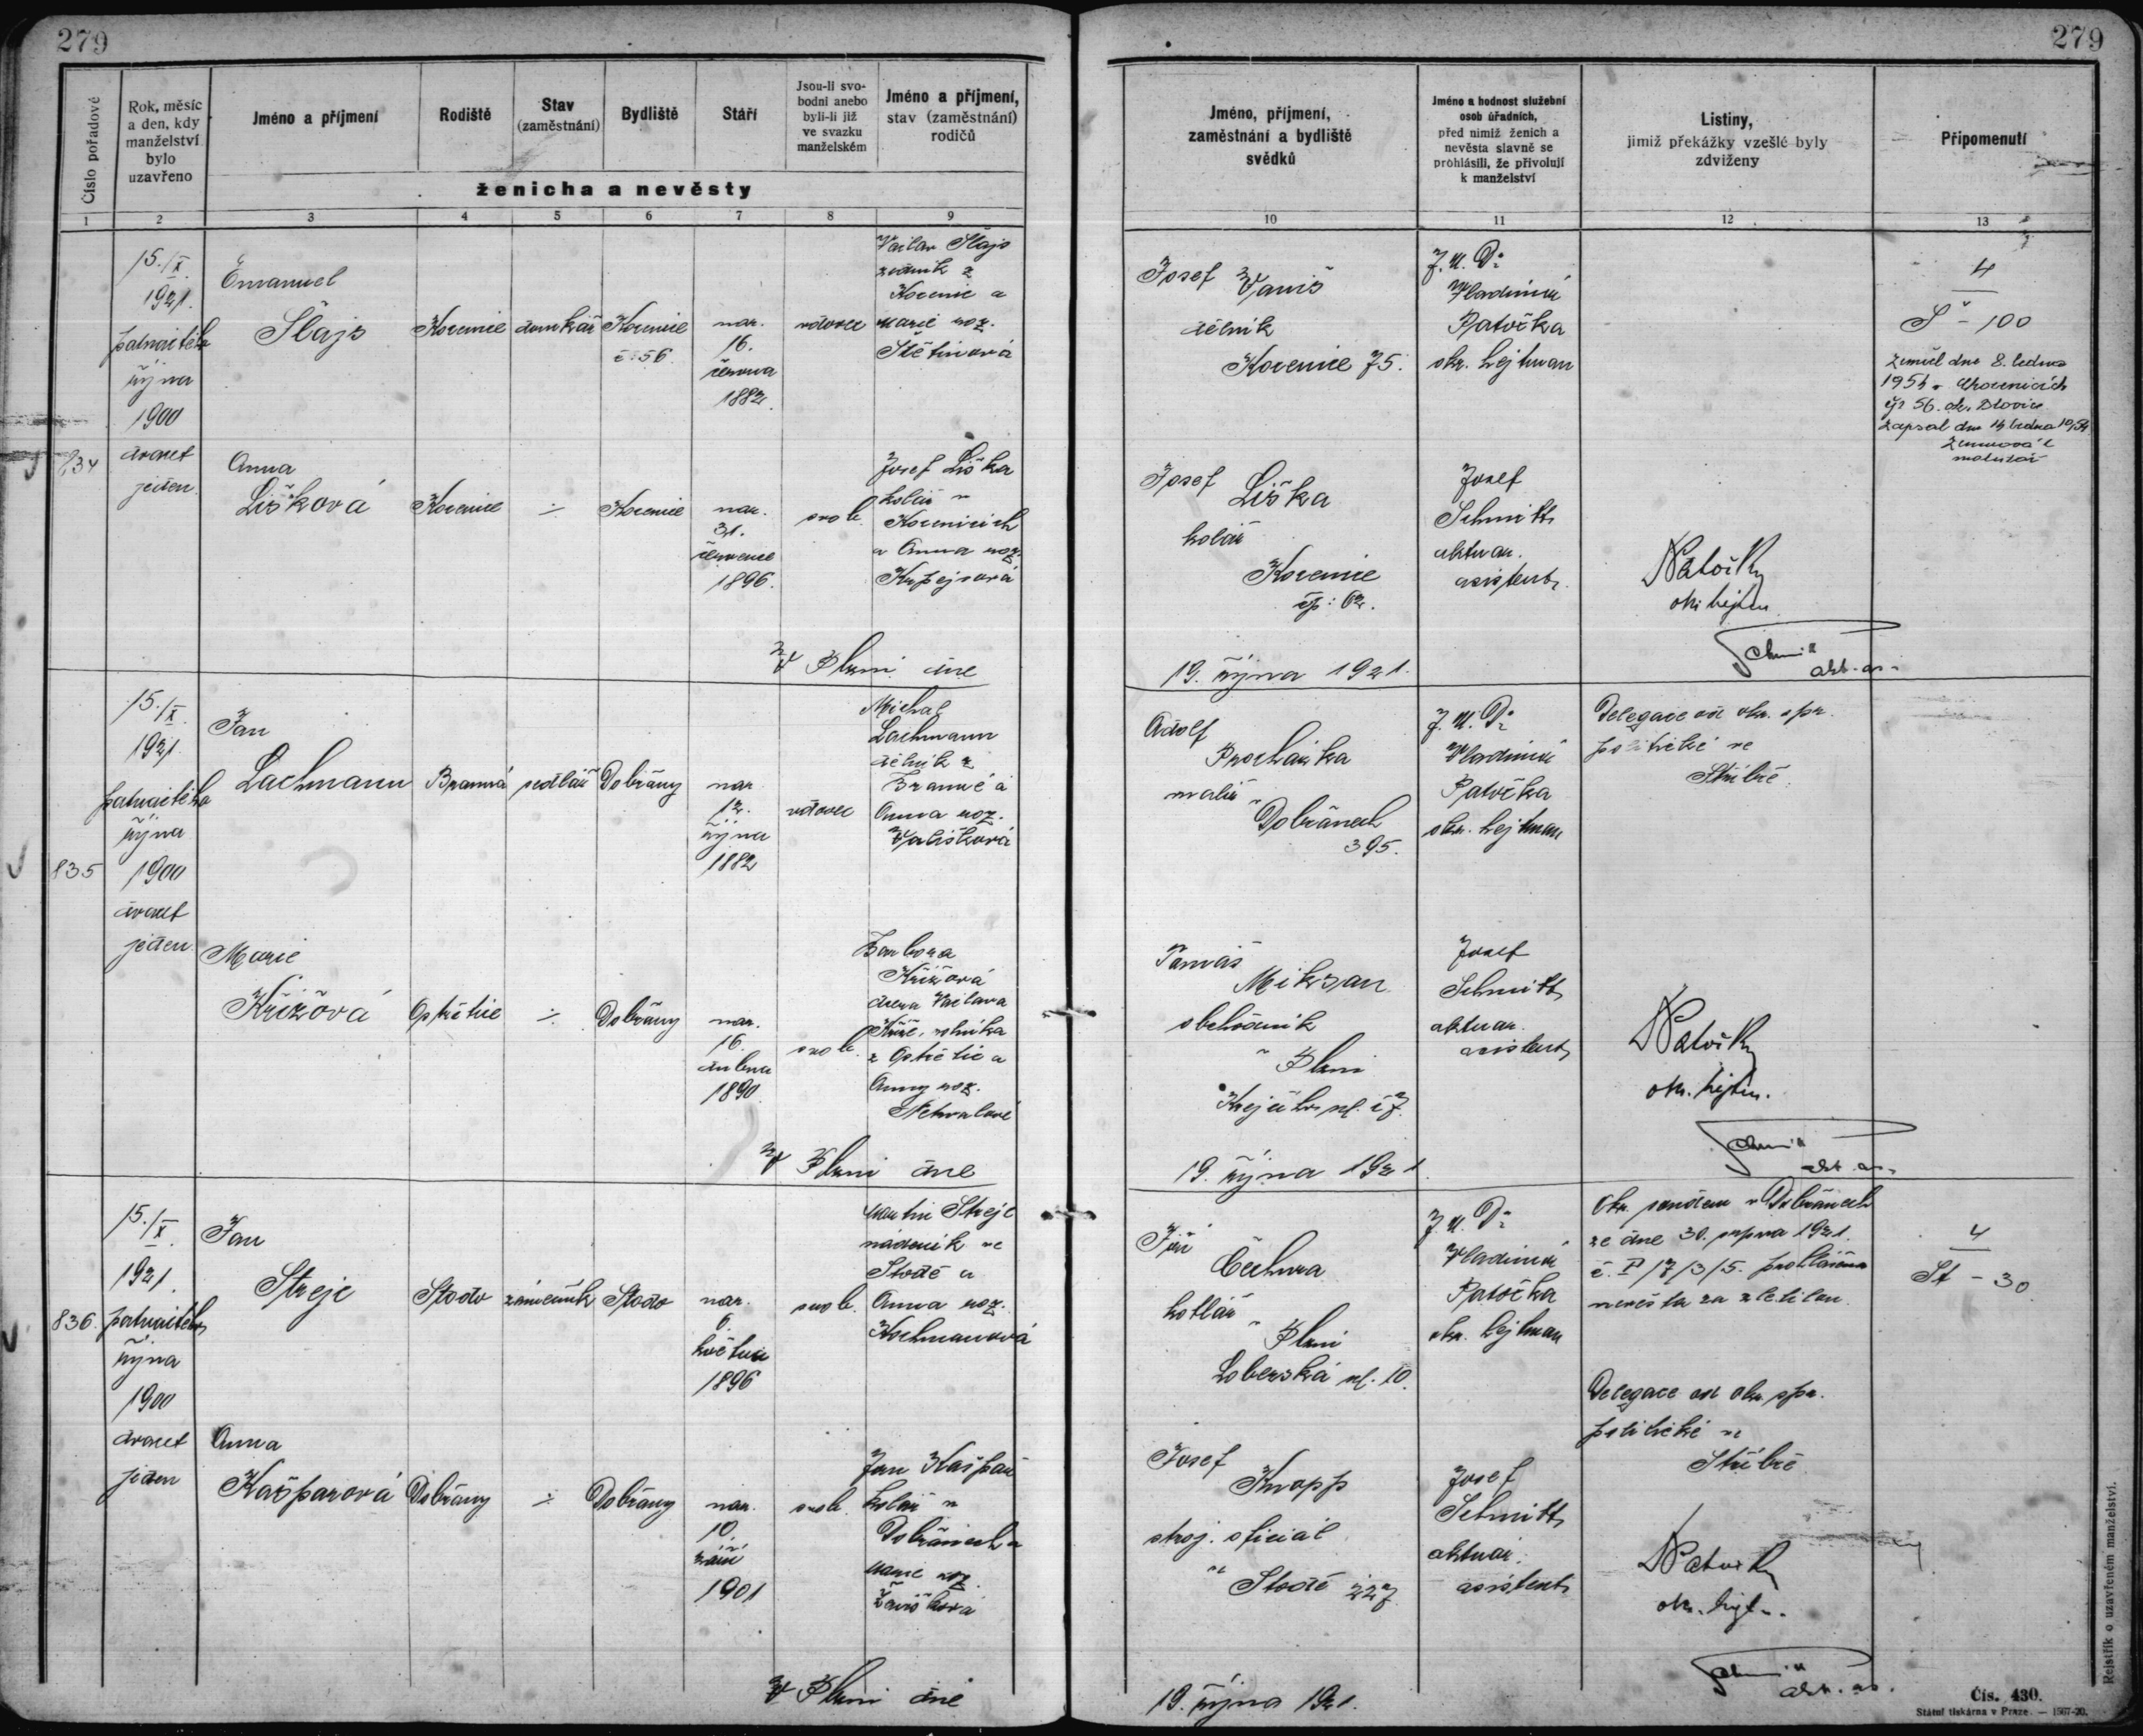 279
279
Číslo pořadové
Rok, měsíc
a den, kdy
manželství
bylo
uzavřeno
Jméno a příjmení
Rodiště
Stav
(zaměstnání)
Bydliště
Stáří
Jsou-li svo-
bodni anebo
byli-li již
ve svazku
manželském
Jméno a příjmení,
stav (zaměstnání)
rodičů
ženicha a nevěsty
1 2 3 4 5 6 7 8 9
Jméno, příjmení,
zaměstnání a bydliště
svědků
Jméno a hodnost služební
osob úřadních,
před nimiž ženich a
nevěsta slavně se
prohlásili, že přivolují
k manželství
Listiny,
jimiž překážky vzešlé byly
zdviženy
Připomenutí
10 11 12 13
834
15./X.
1921.
patnáctého
října
1900
dvacet
jeden
Emanuel
Šlajs
Kocenice
domkář
Kocenice
č. 56
nar.
16.
června
1882.
vdovec
Václav Šlajs
z
Kocenic a
Marie roz.
Štětinová
Josef Vaniš
dělník
Kocenice 75.
J. U. Dr
Vladimír
Patočka
okr. hejtman
4
Š - 100
zemřel dne 8. ledna
1954 v
čp 56. okr. Blovice
zapsal dne 14 ledna 1954
matrikář
Anna
Lišková
Kocenice
÷
Kocenice
nar.
31.
července
1896.
svob.
Josef Liška
kolář v
Kocenicích
a Anna roz.
Josef Liška
kolář
Kocenice
čp: 62.
Josef
Schmitt
aktuar.
asistent
Patočka
okr. hejtm.
Schmitt
akt. as.
V Plzni dne
19. října 1921.
835
15./X.
1921.
patnáctého
října
1900
dvacet
jeden
Jan
Lachmann
Branná
sedlář
Dobřany
nar.
12.
října
1882
vdovec
Michal
Lachmann
dělník z
Branné a
Anna roz.
Adolf
Procházka
malíř v
Dobřanech
395.
J. U. Dr
Vladimír
Patočka
okr. hejtman
Delegace od okr. spr.
politické ve
Stříbře
Marie
Křížová
÷
Dobřany
nar.
16.
dubna
1890
svob.
Barbora
Křížová
dcera Václava
Kříže, rolníka
z
Anny roz.
Tomáš
Mikšan
obchodník
v Plzni
J. U. Dr
Josef
Schmitt
aktuar.
asistent
Patočka
okr. hejtm.
Schmitt
akt. as.
V Plzni dne
19. října 1921
836.
15./X.
1921.
patnáctého
října
1900
dvacet
jeden
Jan
Strejc
Stodo
zámečník
Stodo
nar.
6.
května
1896
svob.
Martin Strejc
nádeník ve
Stodě a
Anna roz.
Kochmanová
Jan
Čechura
kotlář
v Plzni
Loberská ul. 10.
J. U. Dr
Vladimír
Patočka
okr. hejtman
Okr. soudem v Dobřanech
ze dne 30. srpna 1921.
prohlášena
nevěsta za zletilou.
Delegace od okr. spr.
politické ve
Stříbře
4
St - 30
Anna
Kašparová
Dobřany
÷
Dobřany
nar.
10.
září
1901
svob.
Jan Kašpar
kolář v
Dobřanech a
Marie roz.
Josef
Knopp
stroj. oficiál
ve Stodě 227
Josef
Schmitt
aktuar.
asistent
Patočka
okr. hejt.
Schmitt
akt. as.
V Plzni dne
19. října 1921.
Rejstřík o uzavřeném manželství.
Čís. 430.
Státní tiskárna v Praze. — 1567-20.